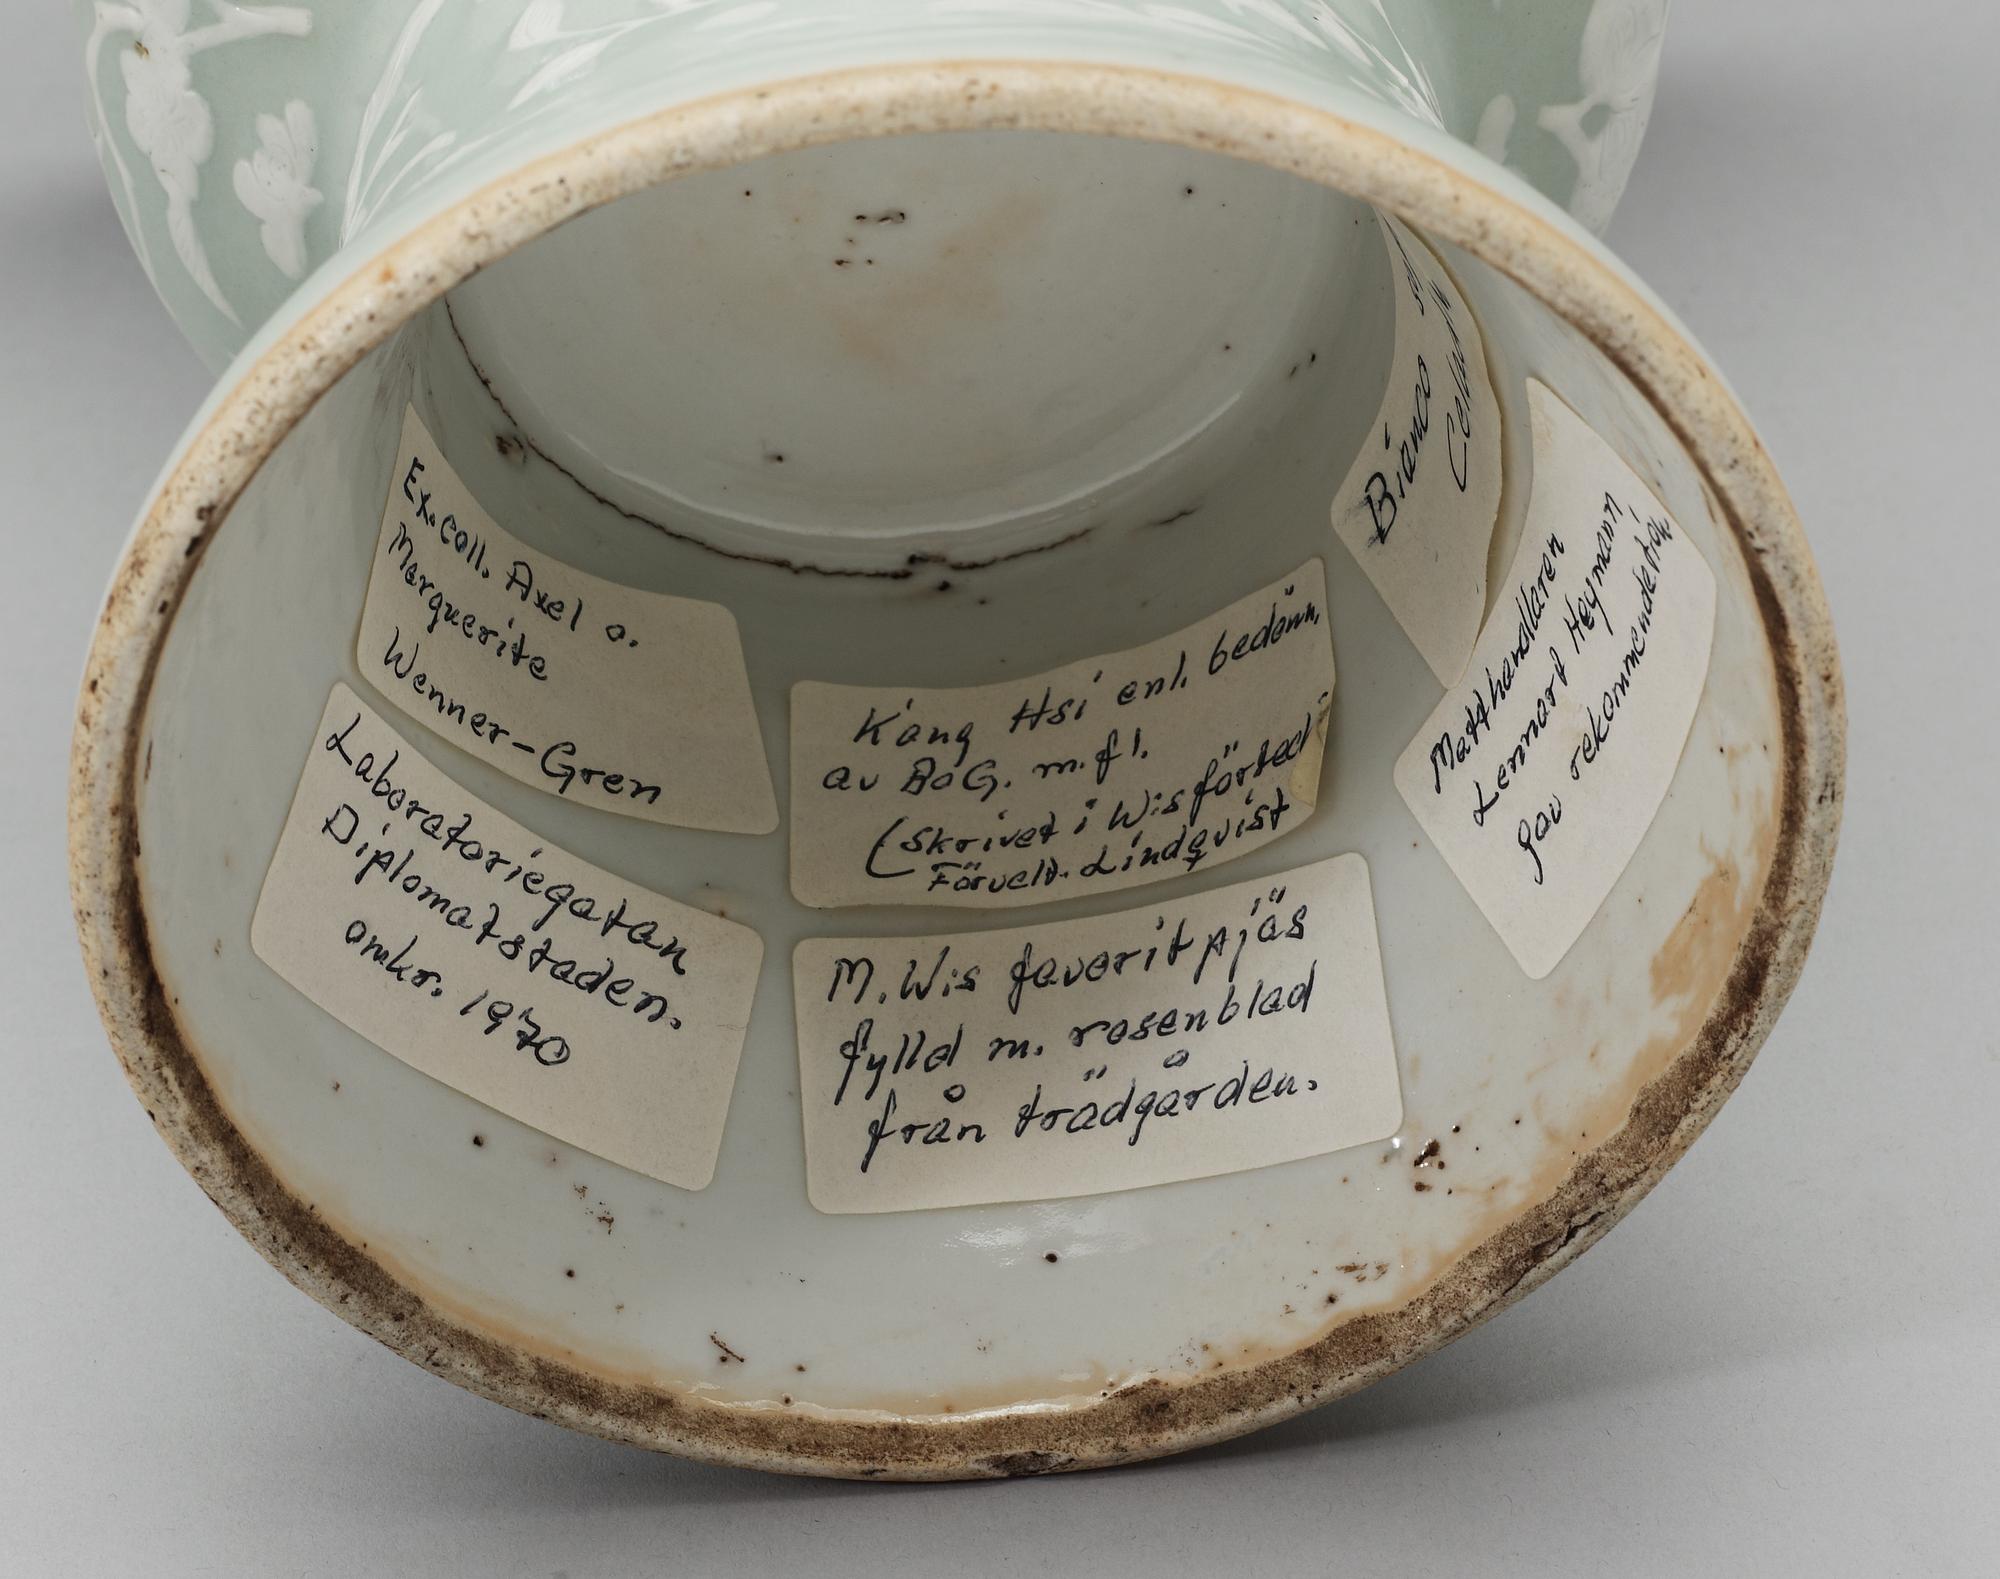 Ex. coll. Axel o.
Marguerite
Wenner-Gren
Laboratoriegatan
Diplomatstaden.
omkr. 1970
K'ang Hsi enl. bedömn.
av BoG. m.fl.
(Skrivet i W:s förteckn
Förvalt. Lindqvist
M. W:s favoritpjäs
fylld m. rosenblad
från trädgården.
Bianco
Matthandlaren
Lennart Heymann
gav rekommendation.